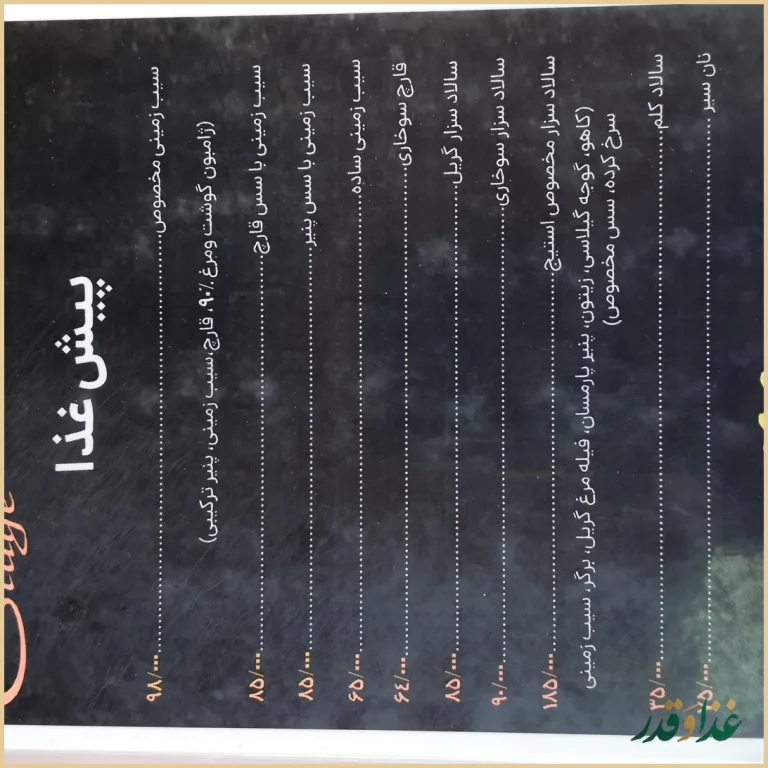 Stage
پیش غذا
سیب زمینی مخصوص ........ ۹۸/۰۰۰
(ژامبون گوشت ومرغ ۹۰٪، قارچ،سیب زمینی، پنیر ترکیبی)
سیب زمینی با سس قارچ ........ ۸۵/۰۰۰
سیب زمینی با سس پنیر ........ ۸۵/۰۰۰
سیب زمینی ساده ........ ۶۵/۰۰۰
قارچ سوخاری ........ ۶۴/۰۰۰
سالاد سزار گریل ........ ۸۵/۰۰۰
سالاد سزار سوخاری ........ ۹۰/۰۰۰
سالاد سزار مخصوص استیج ........ ۱۸۵/۰۰۰
(کاهو، گوجه گیلاسی، زیتون، پنیر پارمسان، فیله مرغ گریل، برگر، سیب زمینی
سرخ کرده، سس مخصوص)
سالاد کلم ........ ۳۵/۰۰۰
نان سیر ........
غذا و قدر